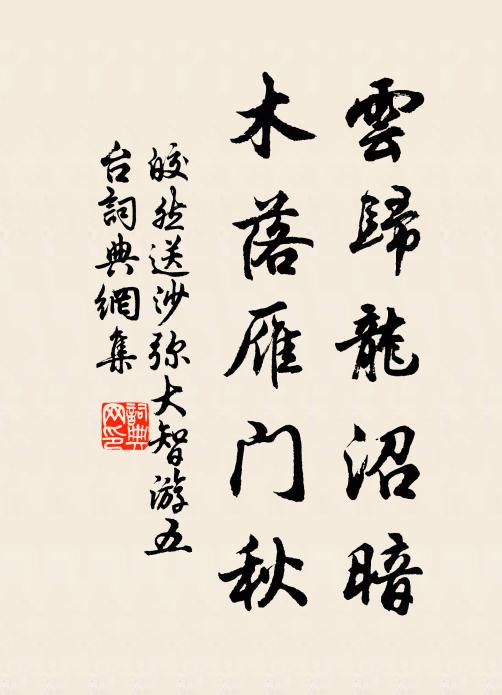 雲歸龍沼暗
木落雁门秋
皎然送沙弥大智游五
台詞典網集
詞典
网印